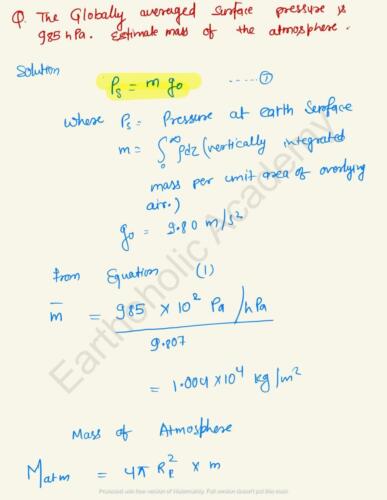 Q. The Globally averaged surface pressure is
985 hPa. Estimate mass of the atmosphere.
Solution
Ps = m g₀ ......①
Where Ps = Pressure at earth Surface
m = ∫₀^∞ ρdz (vertically integrated
mass per unit area of overlying
air.)
g₀ = 9.80 m/s²
From Equation (1)
m̅ = 985 × 10² Pa/hPa
9.807
= 1.004 × 10⁴ kg/m²
Mass of Atmosphere
Matm = 4π R_E² × m
Earthoholic Academy
Protected with free version of Watermarkly. Full version doesn't put this mark.